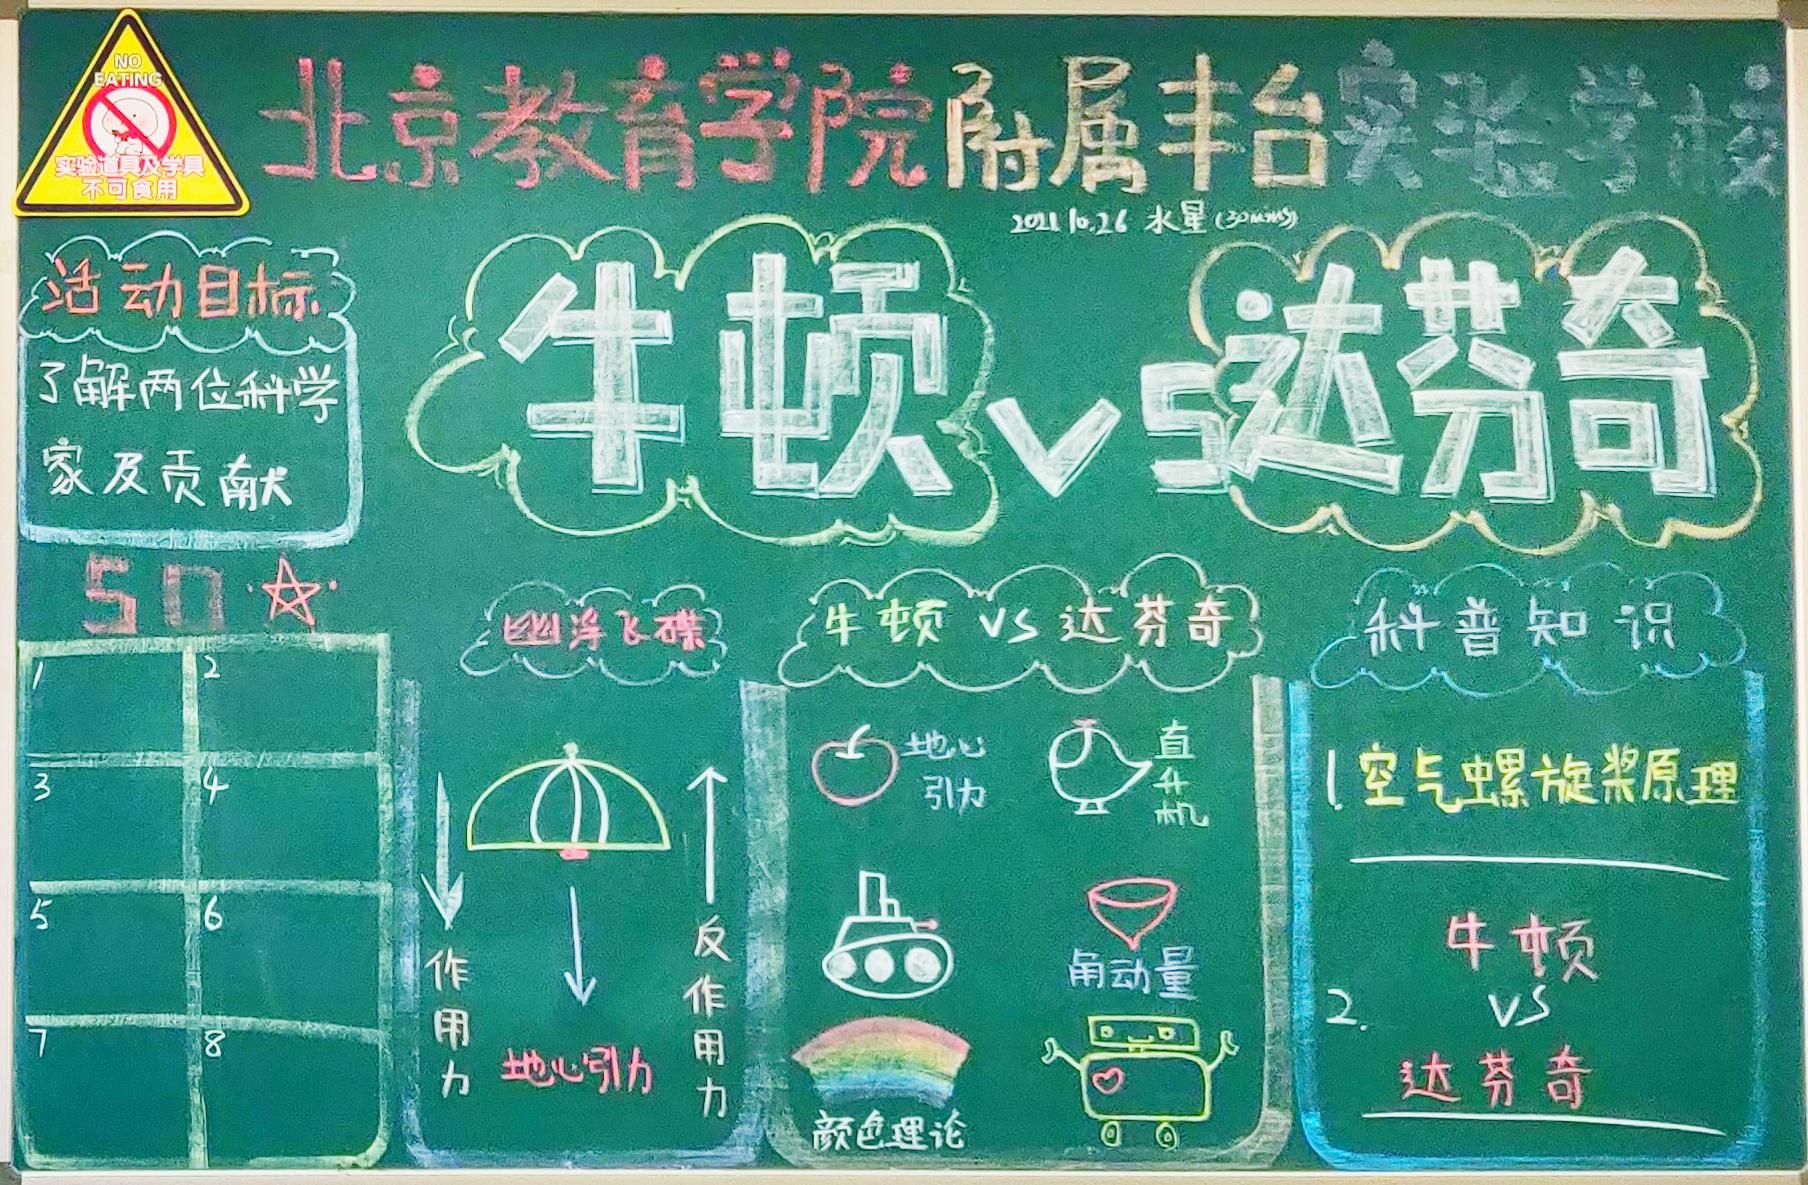 NO
EATING
实验道具及学具
不可食用
北京教育学院附属丰台实验学校
2021.10.26 水星(30mins)
活动目标
了解两位科学
家及贡献
牛顿 vs 达芬奇
SD
1
2
3
4
5
6
7
8
幽浮飞碟
作用力
地心引力
反作用力
牛顿 VS 达芬奇
地心
引力
直升机
角动量
颜色理论
科普知识
1.空气螺旋桨原理
2.
牛顿
VS
达芬奇